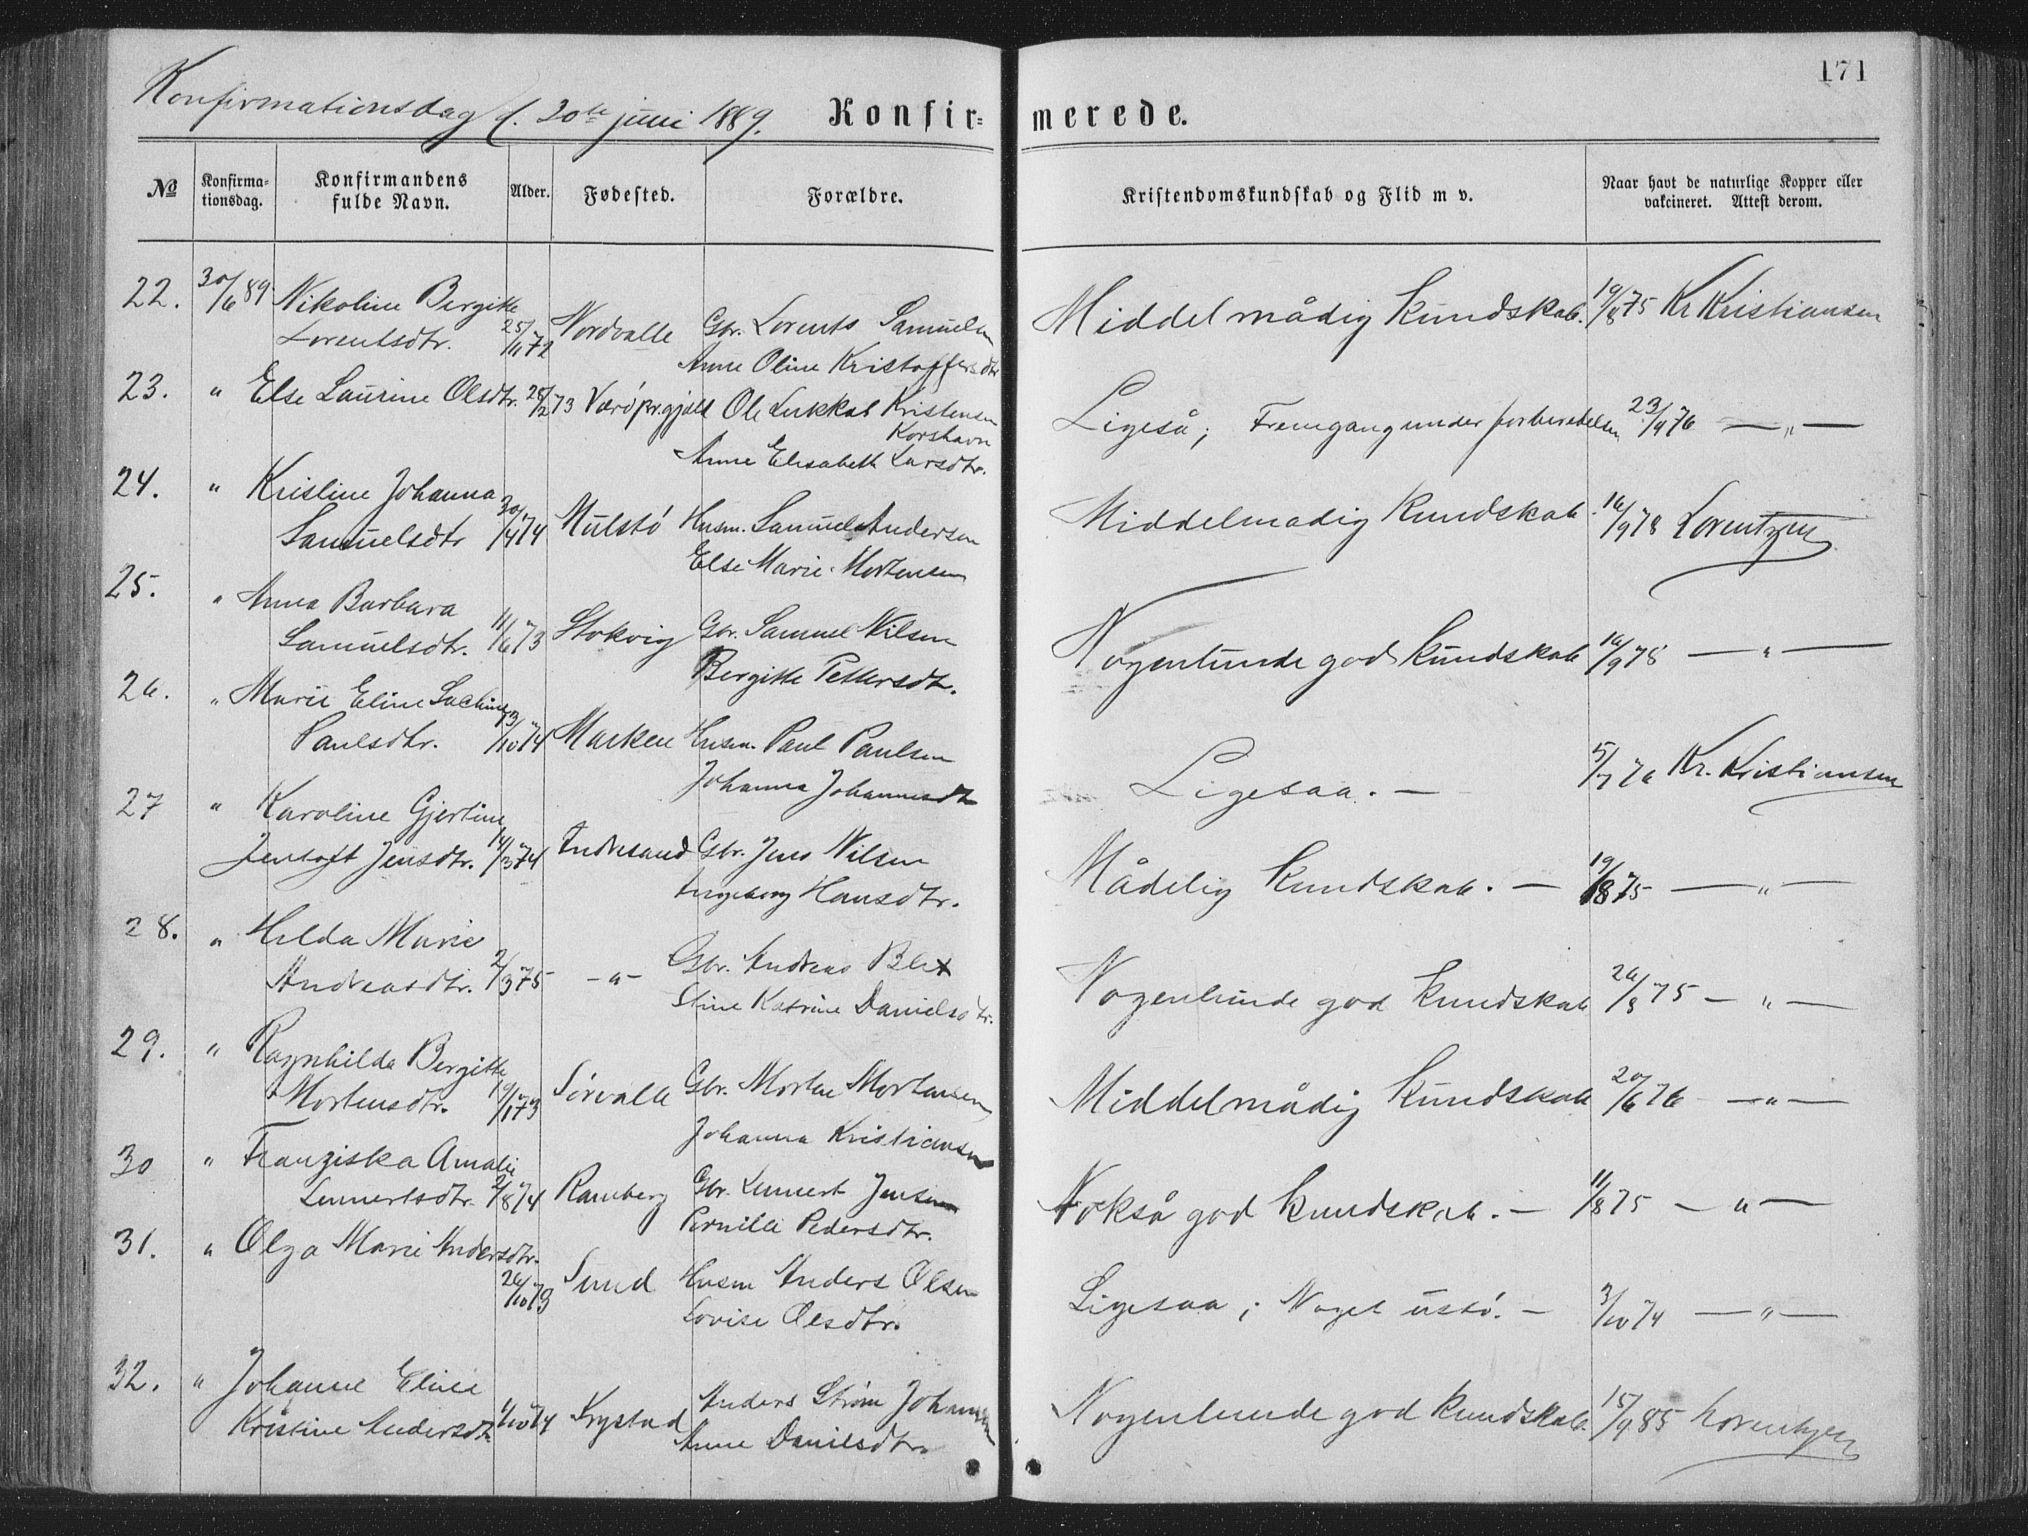 171
Konfirmationsdag d. 30te juni 1889.
Konfir=
merede.
No
Konfirma=
tionsdag.
Konfirmandens
fulde Navn.
Alder.
Fødested.
Forældre.
Kristendomskundskab og Flid m v.
Naar havt de naturlige Kopper eller
vakcineret. Attest derom.
22. 30/6 89 Nikoline Bergitte Middelmådig kundskab. 19/8 75 Kr Kristiansen
Lorentsdtr. 25/11 72 Nordvalle Gbr. Lorents Samuelsen
Anne Oline Kristoffersdtr
23. " Else Laurine Olsdtr. 28/2 73 Værö prgjeld Ole Lukkas Kristensen Ligeså; Fremgang under forberedelsen 23/9 76 — " —
Korshavn
Anne Elisabeth Larsdtr.
24. " Kristine Johanna Middelmadig Kundskab. 16/9 78 Lorentzen
Samuelsdtr 30/4 74 Mulstö Husm. Samuel Andersen
Else Marie Mortensen
25. " Anna Barbara
Samuelsdtr. 11/6 73 Stokvig Gbr. Samuel Nilsen Nogenlunde god kundskab 16/9 78 — " —
Bergitte Pettersdtr.
26. " Marie Eline
Paulsdtr. /10 74 Marken Husm. Paul Paulsen Ligesaa. — 5/7 76 Kr. Kristiansen
Johanna Johannesdtr
27 " Karoline Gjertine
Jentoft Jensdtr. 14/3 74 Andresand Gbr. Jens Nilsen Mådelig kundskab. — 19/8 75 — " —
Ingeborg Hansdtr.
28. " Hilda Marie
Andreasdtr. 2/3 75 - " - Gbr. Andreas Blix Nogenlunde god kundskab 26/8 75 — " —
Stine Katrine Danielsdtr.
29. " Ragnhilda Bergitte
Mortensdtr. 19/1 73 Sörvalle Gbr. Morten Mortensen Middelmådig kundskab 20/6 76 — " —
Johanna Kristiansen
30 " Franziska Amalie
Lennertsdtr. 2/8 74 Ramberg Gbr. Lennert Jensen Nokså god kundskab. — 11/8 75 — " —
Pernille Pedersdtr.
31. " Olga Marie Andersdtr.
26/10 73 Sund Husm Anders Olsen Ligesaa; Noget ustö. — 3/10 74 — " —
Lovise Olsdtr.
32. " Johanne Eline
Kristine Andersdtr 1/10 74 Krystad Anders Ström Johansen Nogenlunde god kundskab. 15/9 85 Lorentzen
Anne Danielsdtr.